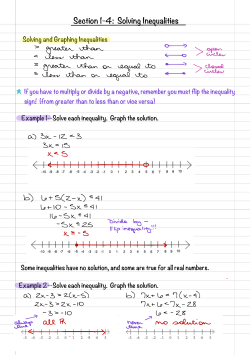 Section 1-4: Solving Inequalities
Solving and Graphing Inequalities
> greater than
< less than
≥ greater than or equal to
≤ less than or equal to
open circles
closed circles
* If you have to multiply or divide by a negative, remember you must flip the inequality
sign! (from greater than to less than or vice versa)
Example 1 - Solve each inequality. Graph the solution.
a) 3x - 12 < 3
3x = 15
x < 5
-10 -9 -8 -7 -6 -5 -4 -3 -2 -1 0 1 2 3 4 5 6 7 8 9 10
b) 6 + 5(2 - x) ≤ 41
6 + 10 - 5x ≤ 41
16 - 5x ≤ 41
-5x ≤ 25
Divide by -
flip inequality!
-10 -9 -8 -7 -6 -5 -4 -3 -2 -1 0 1 2 3 4 5 6 7 8 9 10
Some inequalities have no solution, and some are true for all real numbers.
Example 2 - Solve each inequality. Graph the solution.
a) 2x - 3 > 2(x - 5)
2x - 3 > 2x - 10
-3 > -10
always true
all R
b) 7x + 6 < 7(x - 4)
7x + 6 < 7x - 28
6 < -28
never true
no solution
-5 -4 -3 -2 -1 0 1 2 3 4 5
-5 -4 -3 -2 -1 0 1 2 3 4 5